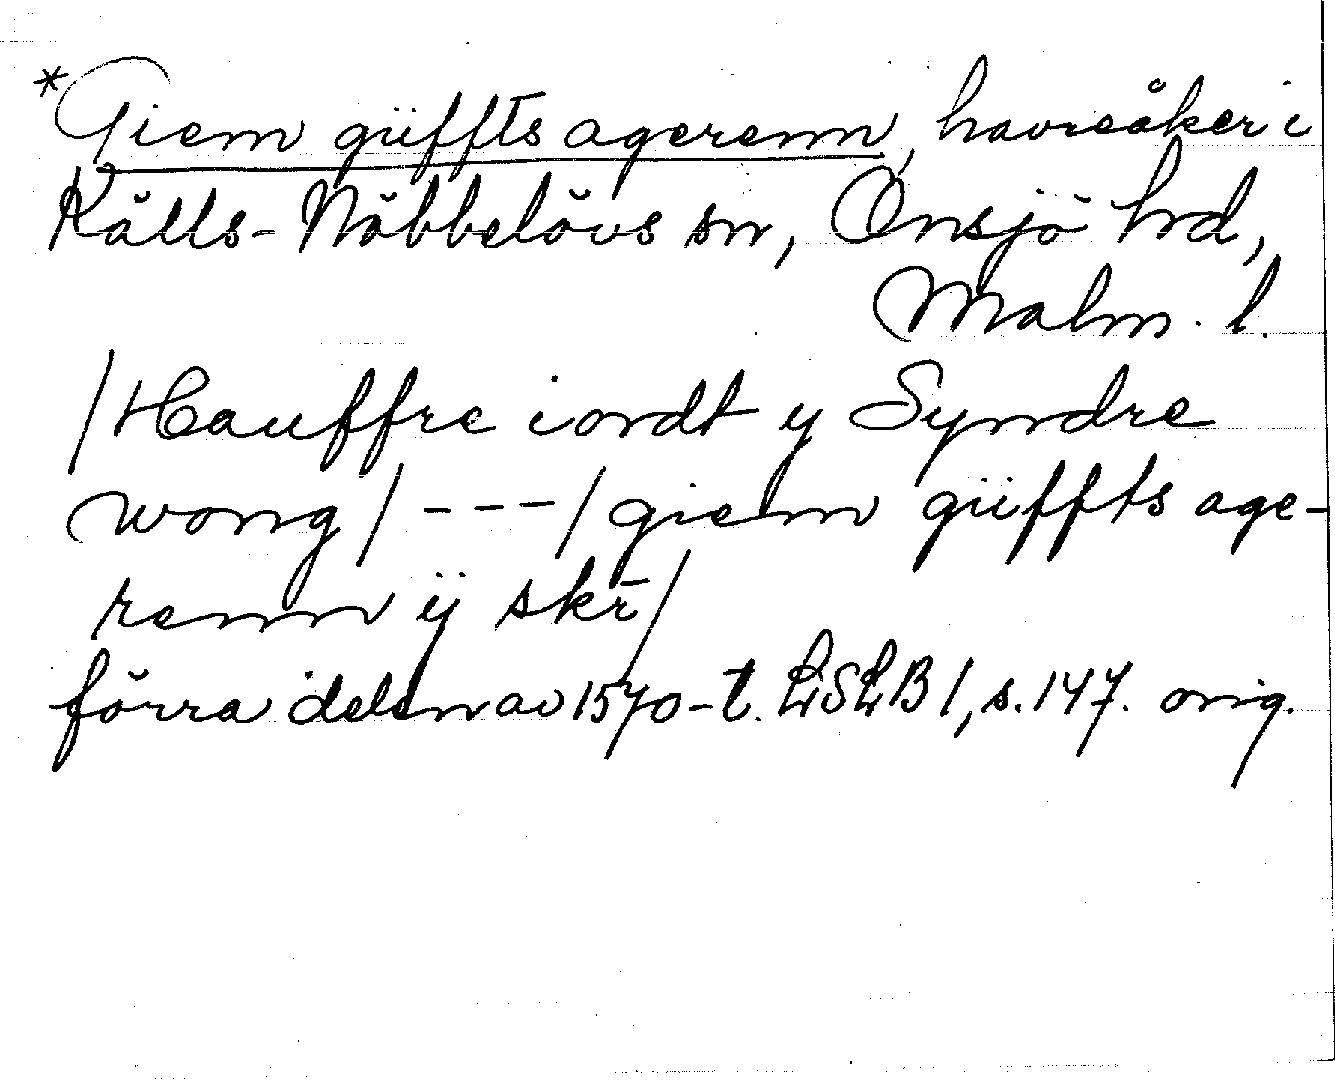 *Giem güffts agerenn, havreåker i
Källs-Nöbbelövs sn, Onsjö hrd,
Malm. l.
/Hauffre iordt y Syndre
wong/ - - - /giem güffts age-
renn ÿ skr̄/
förra delen av 1570-t. LiSLB 1, s. 147. orig.